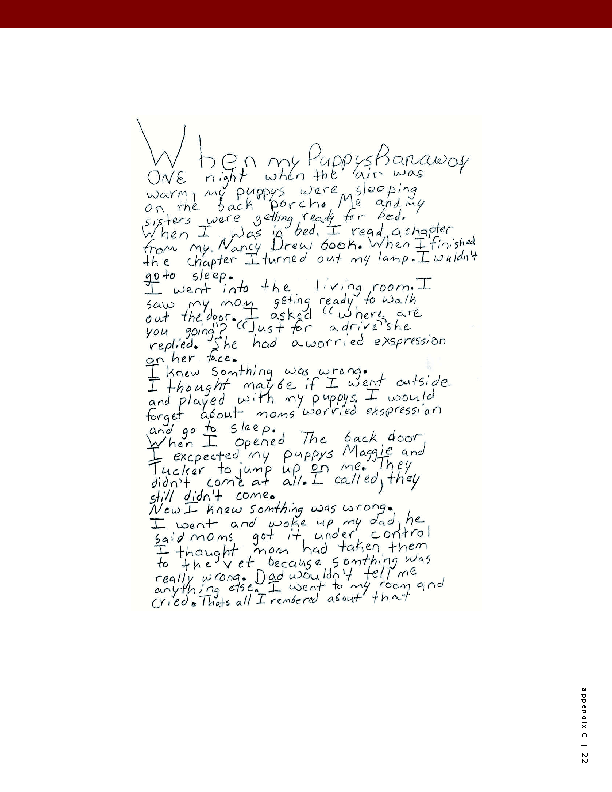 When my Puppys Ranaway
ONE night when the air was
warm, my puppys were sleeping
on the back porch. Me and my
sisters were getting ready for bed.
When I was in bed, I read a chapter
from my Nancy Drew book. When I finished
the chapter I turned out my lamp. I wouldn't
go to sleep.
I went into the living room. I
saw my mom geting ready to walk
out the door. I asked "Where are
you going?" "Just for a drive" she
replied. She had a worried exspression
on her face.
I knew somthing was wrong.
I thought maybe if I went outside
and played with my puppys, I would
forget about moms worried exspression
and go to sleep.
When I opened The back door,
I excpected my puppys Maggie and
Tucker to jump up on me. They
didn't come at all. I called, they
still didn't come.
Now I knew somthing was wrong.
I went and woke up my dad, he
said moms got it under control
I thought mom had taken them
to the vet because somthing was
really wrong. Dad wouldn't tell me
anything else. I went to my room and
cried. Thats all I rembered about that
appendix C | 22